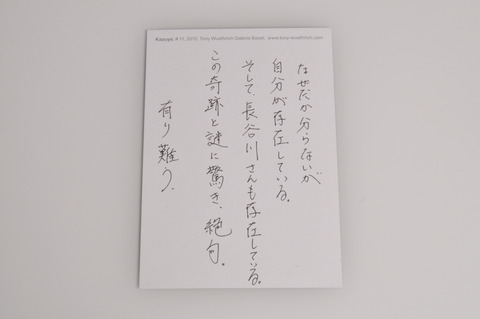 Kazuyo, # 11, 2010, Tony Wuethrich Galerie Basel, www.tony-wuethrich.com
なぜだか分らないが
自分が存在している。
そして、長谷川さんも存在してゐる。
この奇跡と謎に驚き、絶句。
有り難う。